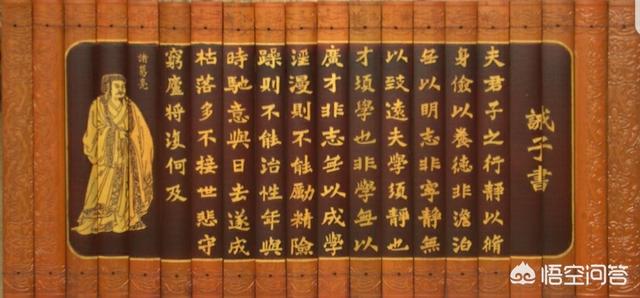 誡子書
夫君子之行靜以脩
身儉以養德非澹泊
無以明志非寧靜無
以致遠夫學須靜也
才須學也非學無以
廣才非志無以成學
淫漫則不能勵精險
躁則不能治性年與
時馳意與日去遂成
枯落多不接世悲守
窮廬將復何及
諸葛亮
悟空问答